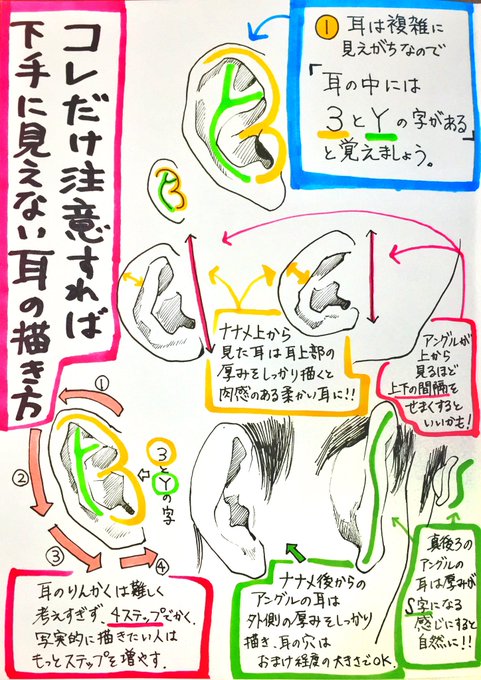 コレだけ注意すれば
下手に見えない耳の描き方
① 耳は複雑に
見えがちなので
「耳の中には
3とYの字がある」
と覚えましょう。
ナナメ上から
見た耳は耳上部の
厚みをしっかり描くと
肉感のある柔かい耳に!!
アングルが
上から
見るほど
上下の間隔を
せまくすると
いいかも!
①
②
③
④
3とYの字
耳のりんかくは難しく
考えすぎず、4ステップでかく。
写実的に描きたい人は
もっとステップを増やす。
ナナメ後からの
アングルの耳は
外側の厚みをしっかり
描き、耳の穴は
おまけ程度の大きさでOK.
真後ろの
アングルの
耳は厚みが
S字になる
感じにすると
自然に!!